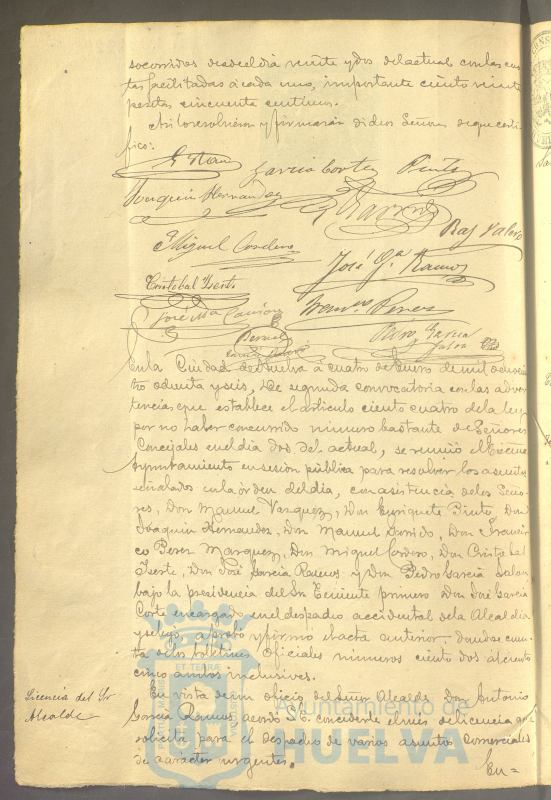 socorridos desde el dia veinte y dos del actual con las cuo
tas facilitadas á cada uno, importante ciento veinte
pesetas cincuenta centimos.
Asi lo resolvieron y firmarán dichos Señores de que certi-
fico:
Garcia Cortes Pinto
Joaquin Hernandez
Raf Valero
Miguel Cordero
José Ga Ramos
Cristobal Iserte
José Ma
Franco Perez
Pedro Garcia
Jalon
En la Ciudad de Huelva á cuatro de Enero de mil ochocien
tos ochenta y seis, de segunda convocatoria con las adver
tencias que establece el articulo ciento cuatro de la ley
por no haber concurrido número bastante de Señores
Concejales en el dia dos del actual, se reunió el Excmo
Ayuntamiento en sesion pública para resolver los asuntos
señalados en la órden del dia, con asistencia de los Seño-
res, Don Manuel Vazquez, Don Enriquete Pinto, Don
Joaquin Hernandez, Don Manuel Garrido, Don Francis
co Perez Marquez, Don Miguel Cordero, Don Cristobal
Iserte, Don José Garcia Ramos y Don Pedro Garcia Jalon
bajo la presidencia del Sr Teniente primero Don José Garcia
Corte encargado en el despacho accidental de la Alcaldia
y se leyó, aprobó y firmó el acta anterior, dandose cuen-
ta de los boletines Oficiales números ciento dos al ciento
cinco ambos inclusives.
Licencia del Sr
Alcalde
En vista de un oficio del Señor Alcalde Don Antonio
Garcia Ramos, acordó S.E. concederle el mes de licencia que
solicita para el despacho de varios asuntos comerciales
de caracter urgentes.
En=
Ayuntamiento de
HUELVA